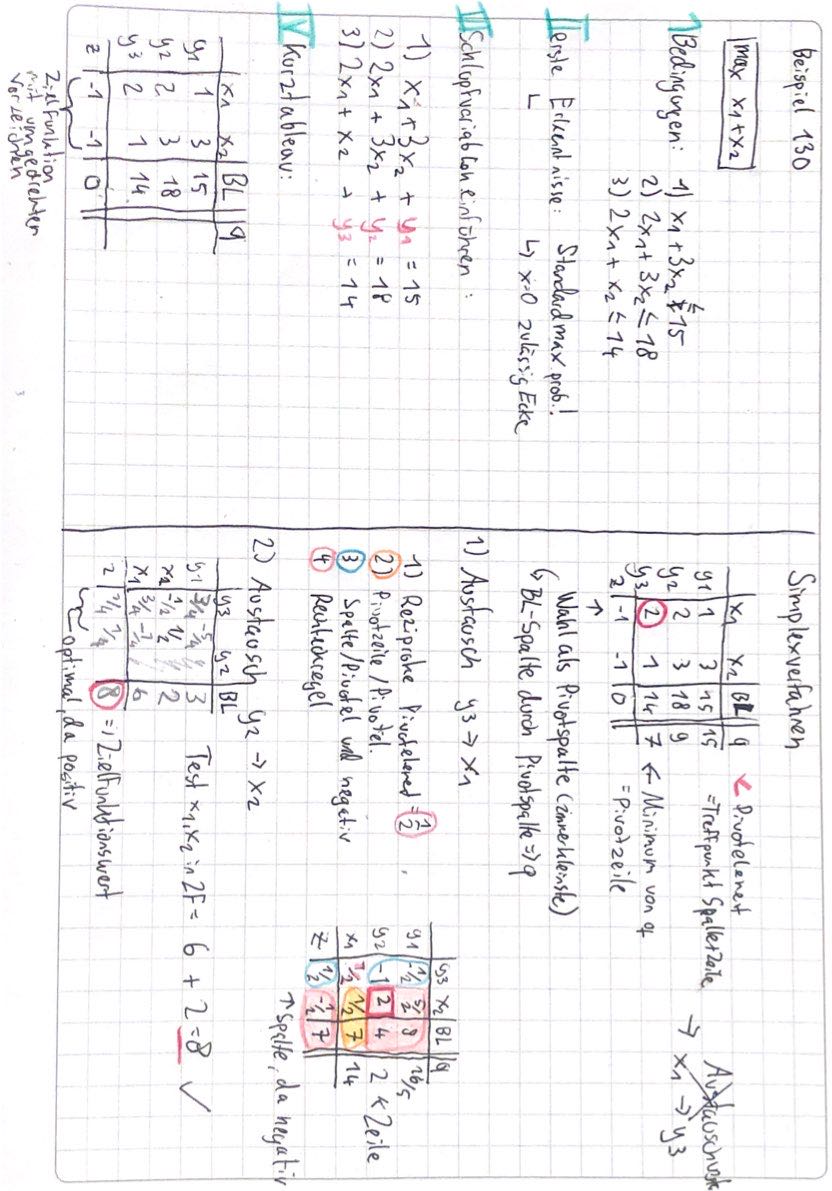 Beispiel 130
max x1+x2
I Bedingungen: 1) x1 + 3x2 ≤ 15
2) 2x1 + 3x2 ≤ 18
3) 2x1 + x2 ≤ 14
II erste Erkenntnisse: Standardmax prob.!
↳ x=0 zulässig Ecke
III Schlupfvariablen einführen:
1) x1 + 3x2 + y1 = 15
2) 2x1 + 3x2 + y2 = 18
3) 2x1 + x2 + y3 = 14
IV Kurztableau:
x1 x2 BL q
y1 1 3 15
y2 2 3 18
y3 2 1 14
z -1 -1 0
Zielfunktion
mit umgedrehten
Vorzeichen
Simplexverfahren
x1 x2 BL q
y1 1 3 15 15
y2 2 3 18 9
y3 2 1 14 7
z -1 -1 0
← Pivotelement
=Treffpunkt Spalte+Zeile
← Minimum von q
=Pivotzeile
→ x1 → y3
↑
Wahl als Pivotspalte (immer kleinste)
↳ BL-Spalte durch Pivotspalte => q
1) Austausch y3 → x1
1) Reziproke Pivotelement = 1/2
2) Pivotzeile / Pivotel.
3 Spalte/Pivotel und negativ
4 Rechteckregel
y3 x2 BL q
y1 -1/2 5/2 8 16/5
y2 -1 2 4 2 ← Zeile
x1 1/2 1/2 7 14
z 1/2 -1/2 7
↑ Spalte, da negativ
2) Austausch y2 → x2
y3 y2 BL
y1 3/4 -5/4 3
x2 -1/2 1/2 2
x1 3/4 -1/4 6
z 1/4 1/4 8 => Zielfunktionswert
optimal, da positiv
Test x1,x2 in ZF = 6 + 2 = 8 ✓